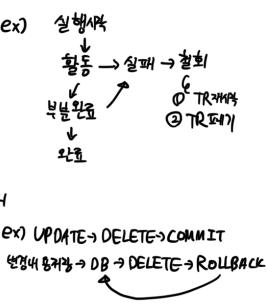 ex) 실행시작
↓
활동 → 실패 → 철회
↓
부분완료
① TR재시작
② TR폐기
↓
완료
ex) UPDATE → DELETE → COMMIT
변경내용저장 → DB → DELETE → ROLLBACK